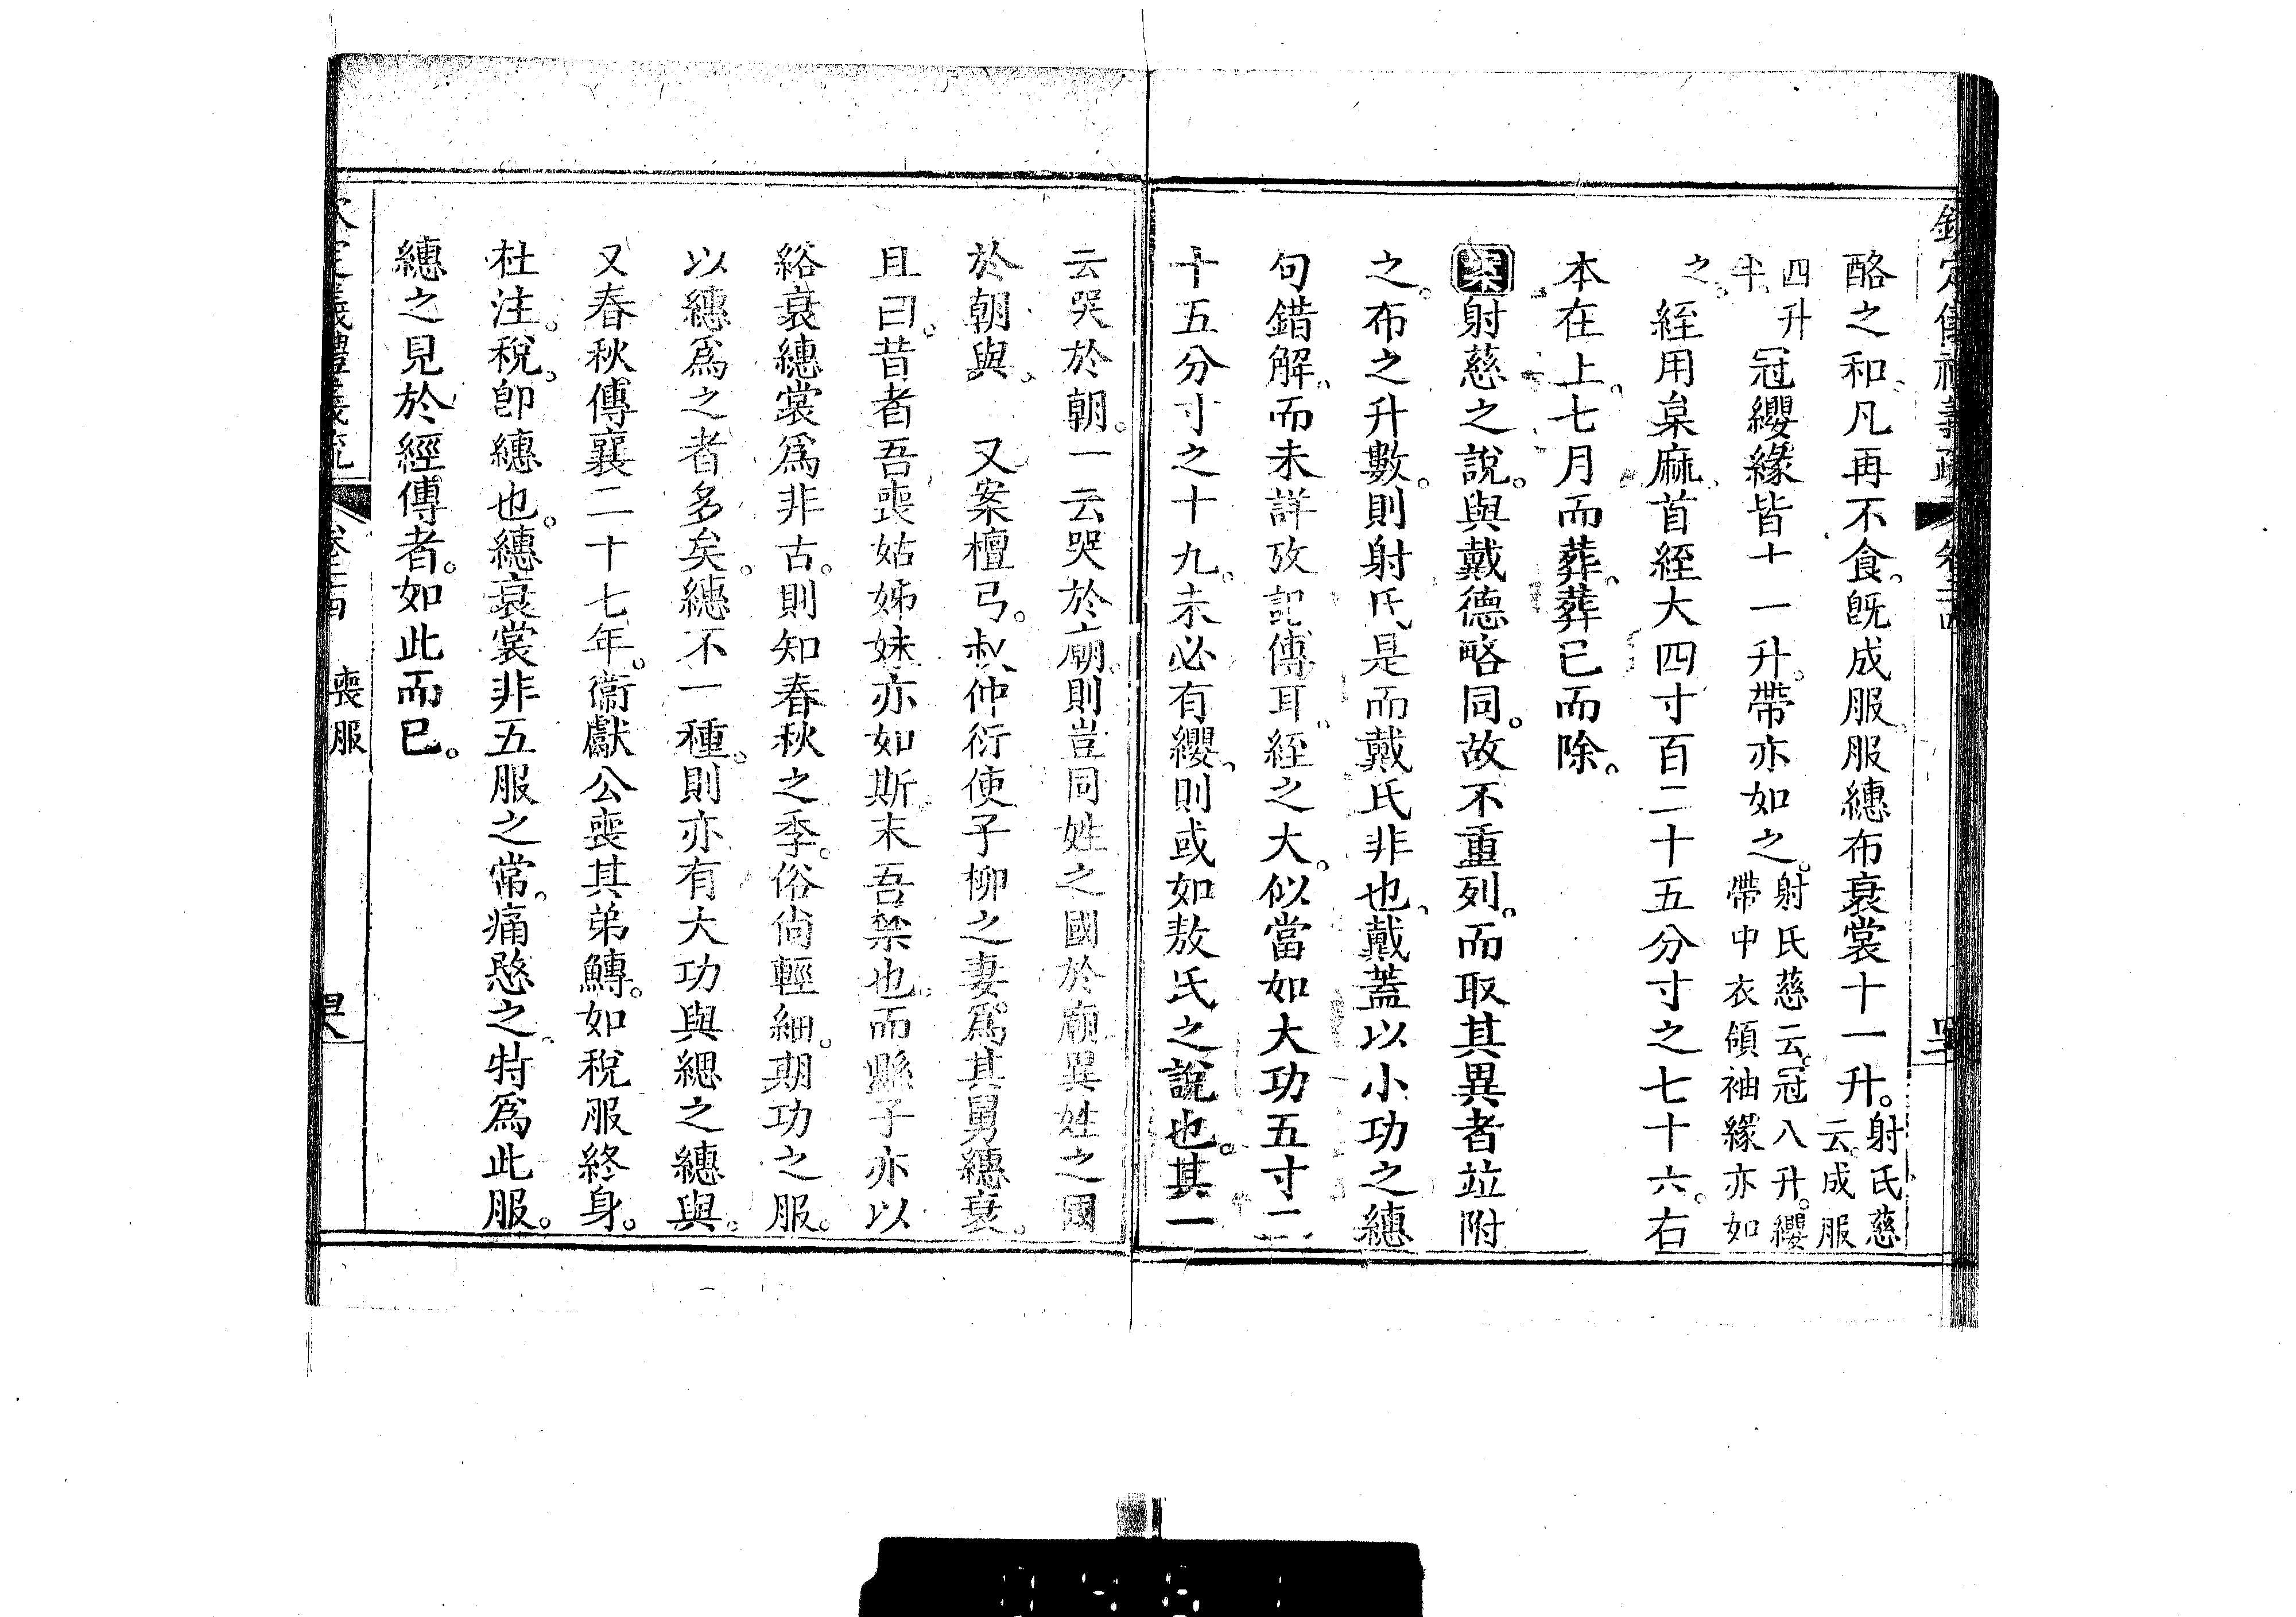 欽定儀禮義疏 卷二十四
酪之和、凡再不食。既成服、服繐布衰裳十一升。射氏慈云。成服
四升半。冠纓緣皆十一升。帶亦如之。射氏慈云。冠八升。纓帶中衣領袖緣亦如
之。絰用枲麻、首絰大四寸百二十五分寸之七十六。右
本在上。七月而葬。葬已而除。
案射慈之說。與戴德略同。故不重列。而取其異者竝附
之。布之升數。則射氏是而戴氏非也、戴蓋以小功之繐
句錯解、而未詳攷記傳耳。絰之大。似當如大功五寸二
十五分寸之十九。未必有纓、則或如敖氏之說也。其一
云哭於朝。一云哭於廟。則豈同姓之國於廟異姓之國
於朝與。 又案檀弓。叔仲衍使子柳之妻。爲其舅繐衰。
且曰。昔者吾喪姑姊妹亦如斯。末吾禁也。而縣子亦以
綌衰繐裳爲非古。則知春秋之季。俗尙輕細。期功之服。
以繐爲之者多矣。繐不一種。則亦有大功與緦之繐與。
又春秋傳襄二十七年。衞獻公喪其弟鱄。如稅服終身。
杜注。稅。卽繐也。繐衰裳非五服之常。痛愍之。特爲此服。
繐之見於經傳者。如此而已。
欽定儀禮義疏 卷二十四 喪服